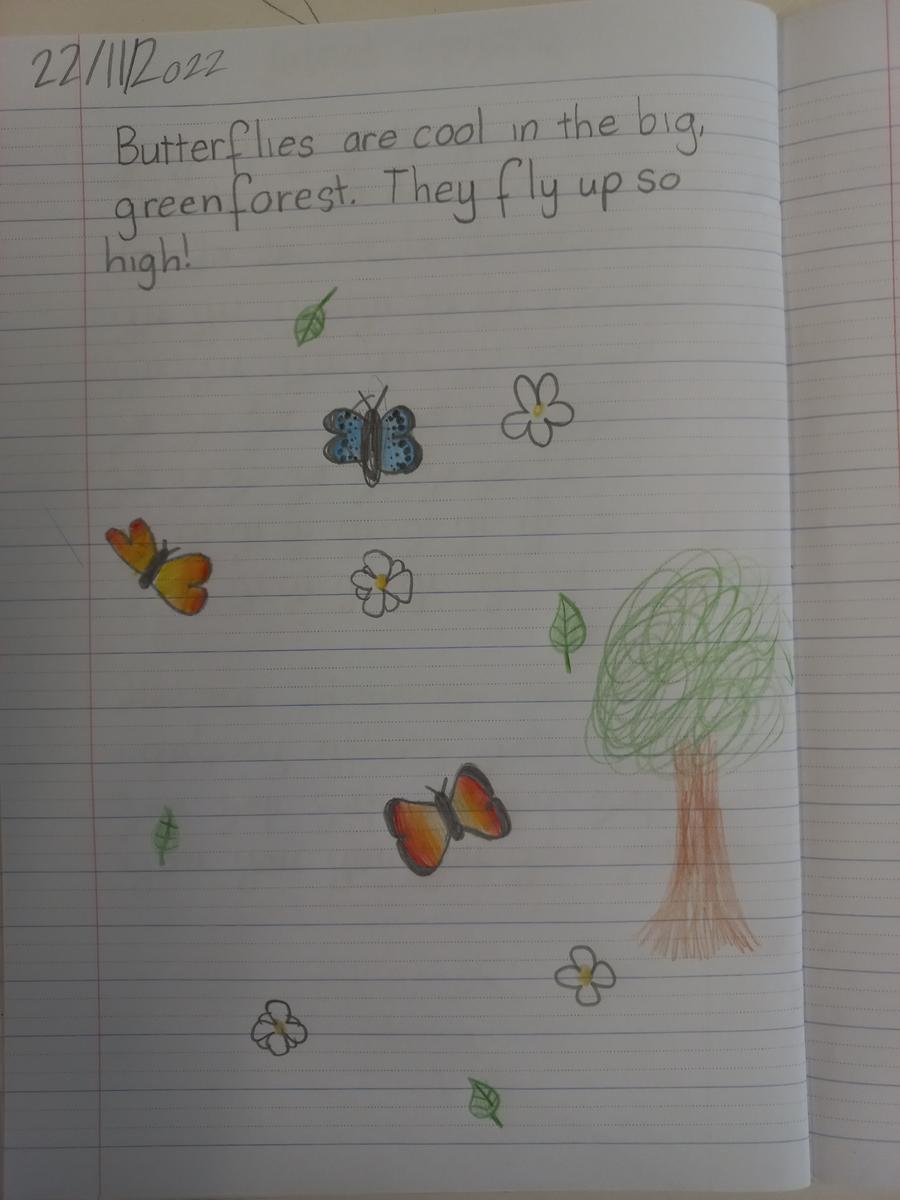 22/11/2022
Butterflies are cool in the big,
green forest. They fly up so
high!